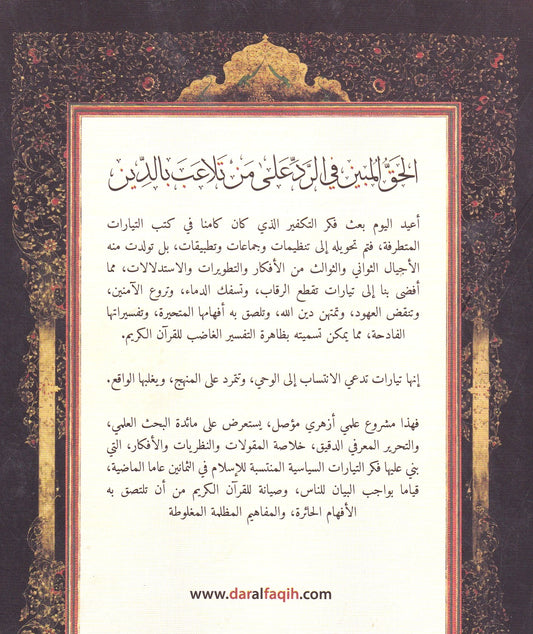 الحَقُّ المُبِين فِي الرَّدِّ عَلَى مَن تَلاعَبَ بالدِّين
أعيد اليوم بعث فكر التكفير الذي كان كامنا في كتب التيارات
المتطرفة، فتم تحويله إلى تنظيمات وجماعات وتطبيقات، بل تولدت منه
الأجيال الثواني والثوالث من الأفكار والتطويرات والاستدلالات، مما
أفضى بنا إلى تيارات تقطع الرقاب، وتسفك الدماء، وتروع الآمنين،
وتنقض العهود، وتمتهن دين الله، وتلصق به أفهامها المتحيرة، وتفسيراتها
الفادحة، مما يمكن تسميته بظاهرة التفسير الغاضب للقرآن الكريم.
إنها تيارات تدعي الانتساب إلى الوحي، وتتمرد على المنهج، ويغلبها الواقع.
فهذا مشروع علمي أزهري مؤصل، يستعرض على مائدة البحث العلمي،
والتحرير المعرفي الدقيق، خلاصة المقولات والنظريات والأفكار، التي
بني عليها فكر التيارات السياسية المنتسبة للإسلام في الثمانين عاما الماضية،
قياما بواجب البيان للناس، وصيانة للقرآن الكريم من أن تلتصق به
الأفهام الحائرة، والمفاهيم المظلمة المغلوطة
www.daralfaqih.com